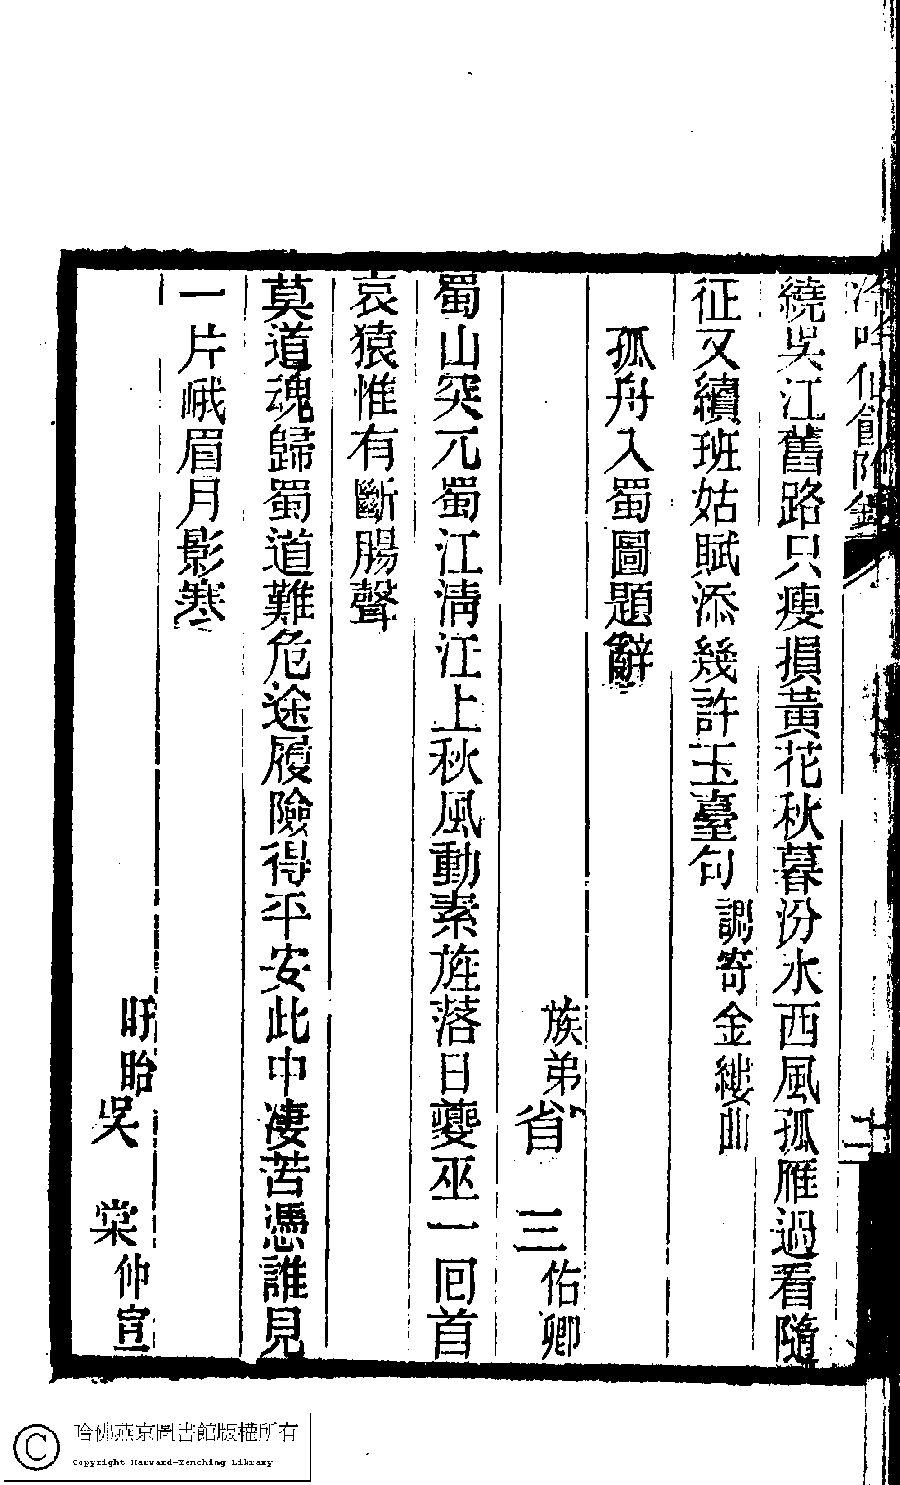 冷吟仙館附錄
二
繞吳江舊路只瘦損黃花秋暮汾水西風孤雁過看隨
征又續班姑賦添幾許玉臺句調寄金縷曲
孤舟入蜀圖題辭
族弟省三佑卿
蜀山突兀蜀江淸江上秋風動素旌落日夔巫一囘首
哀猿惟有斷腸聲
莫道魂歸蜀道難危途履險得平安此中凄苦憑誰見
一片峨眉月影寒
盱眙吳棠仲宣
哈佛燕京圖書館版權所有
Copyright Harvard-Yenching Library